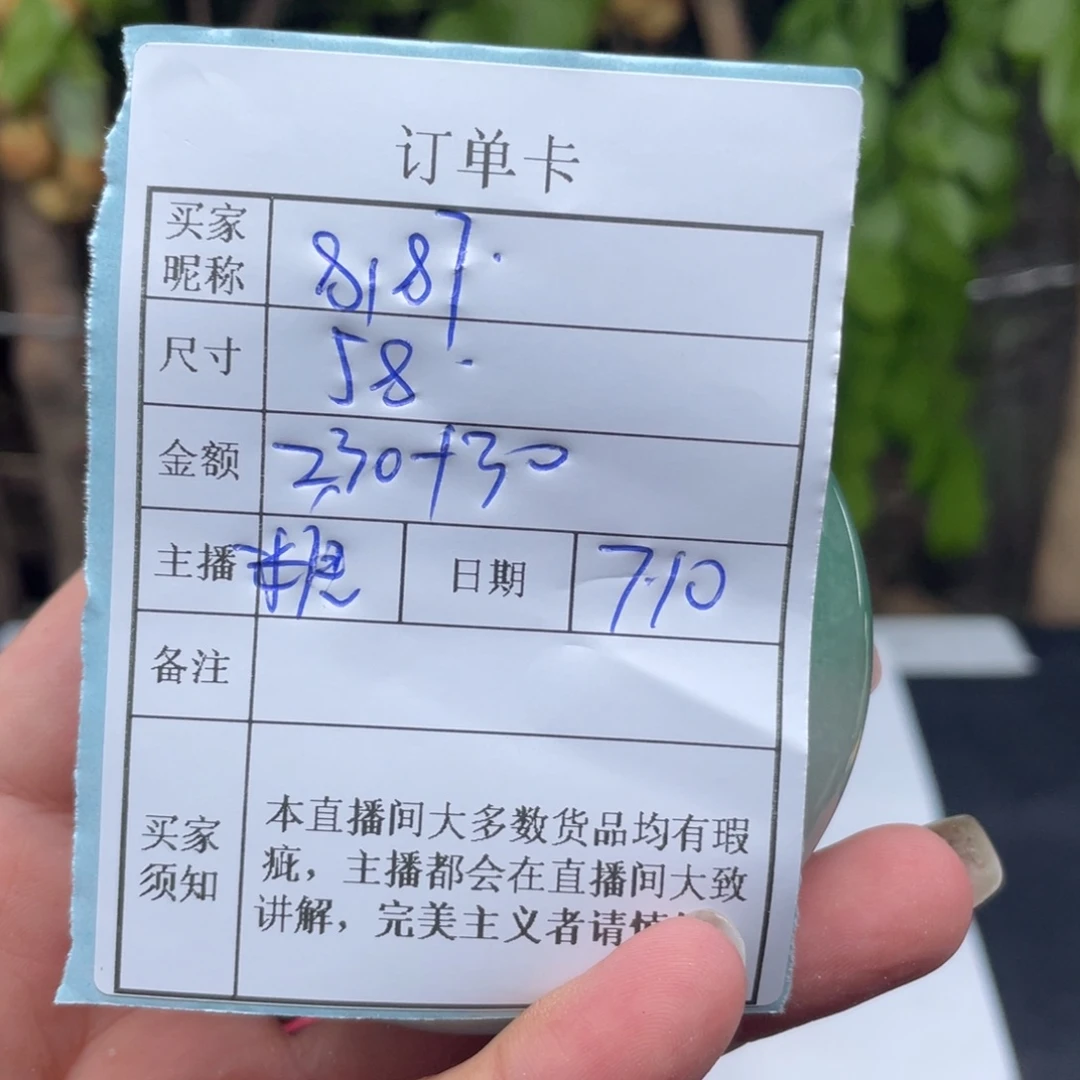 订单卡
买家昵称 8187.
尺寸 58.
金额 230+30
主播 日期 7.10
备注
买家须知
本直播间大多数货品均有瑕
疵，主播都会在直播间大致
讲解，完美主义者请慎